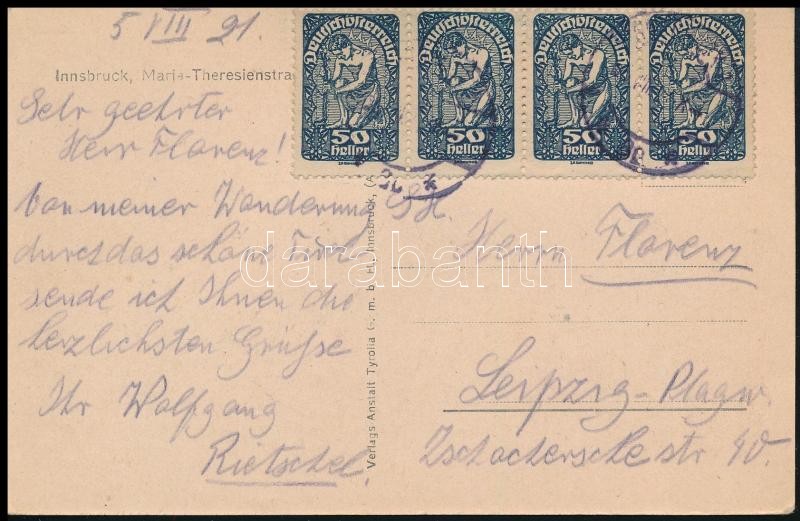 5 VIII 21.
Innsbruck, Maria-Theresienstra
Sehr geehrter
Herr Florenz!
Von meiner Wanderung
durch das schöne Tirol
sende ich Ihnen die
herzlichsten Grüße
Ihr Wolfgang
Rietschel.
Deutschösterreich
50
heller
Deutschösterreich
50
heller
Deutschösterreich
50
heller
Deutschösterreich
50
heller
Verlags Anstalt Tyrolia G. m. b. H., Innsbruck,
Herrn Florenz
Leipzig-Plagw.
Zschocherschestr 40.
darabanth